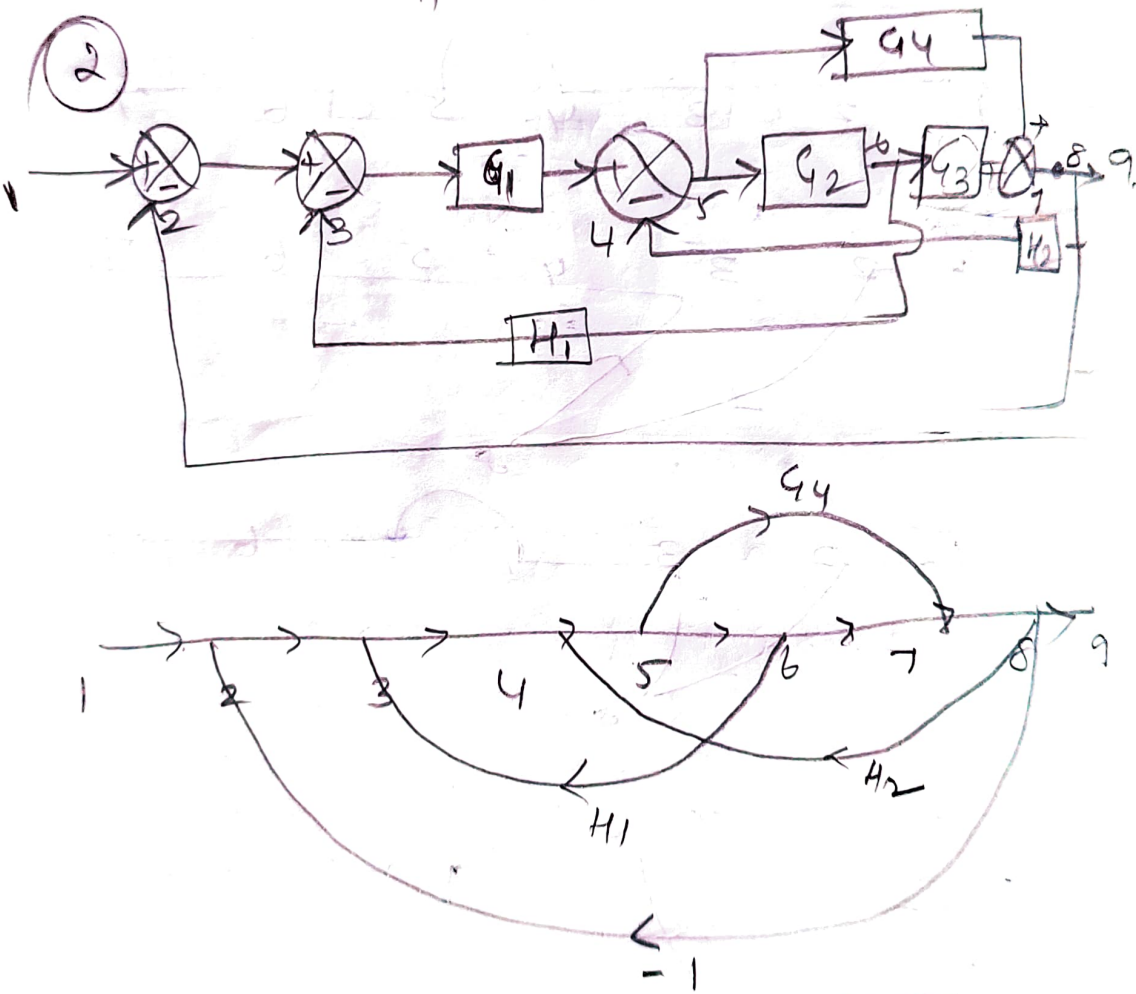 2
G4
1 + - 2 + - 3 G1 + - 4 5 G2 6 G3 + + 7 8 9
H2
H1
G4
1 2 3 4 5 6 7 8 9
H2
H1
-1